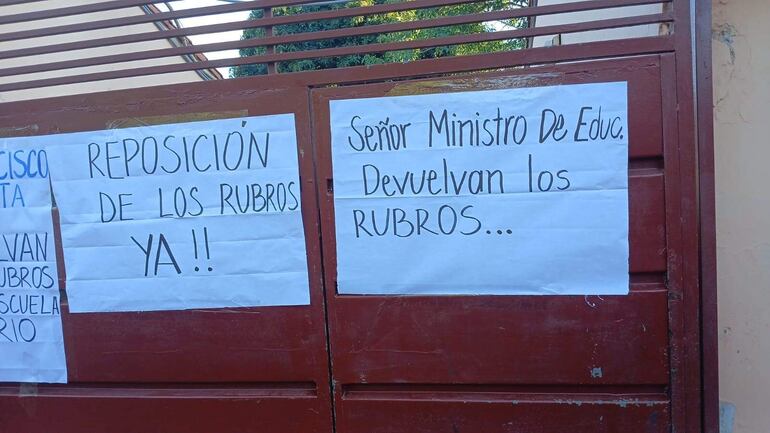 CISCO
TA
LVAN
UBROS
SCUELA
RIO
REPOSICIÓN
DE LOS RUBROS
YA !!
Señor Ministro De Educ.
Devuelvan los
RUBROS...